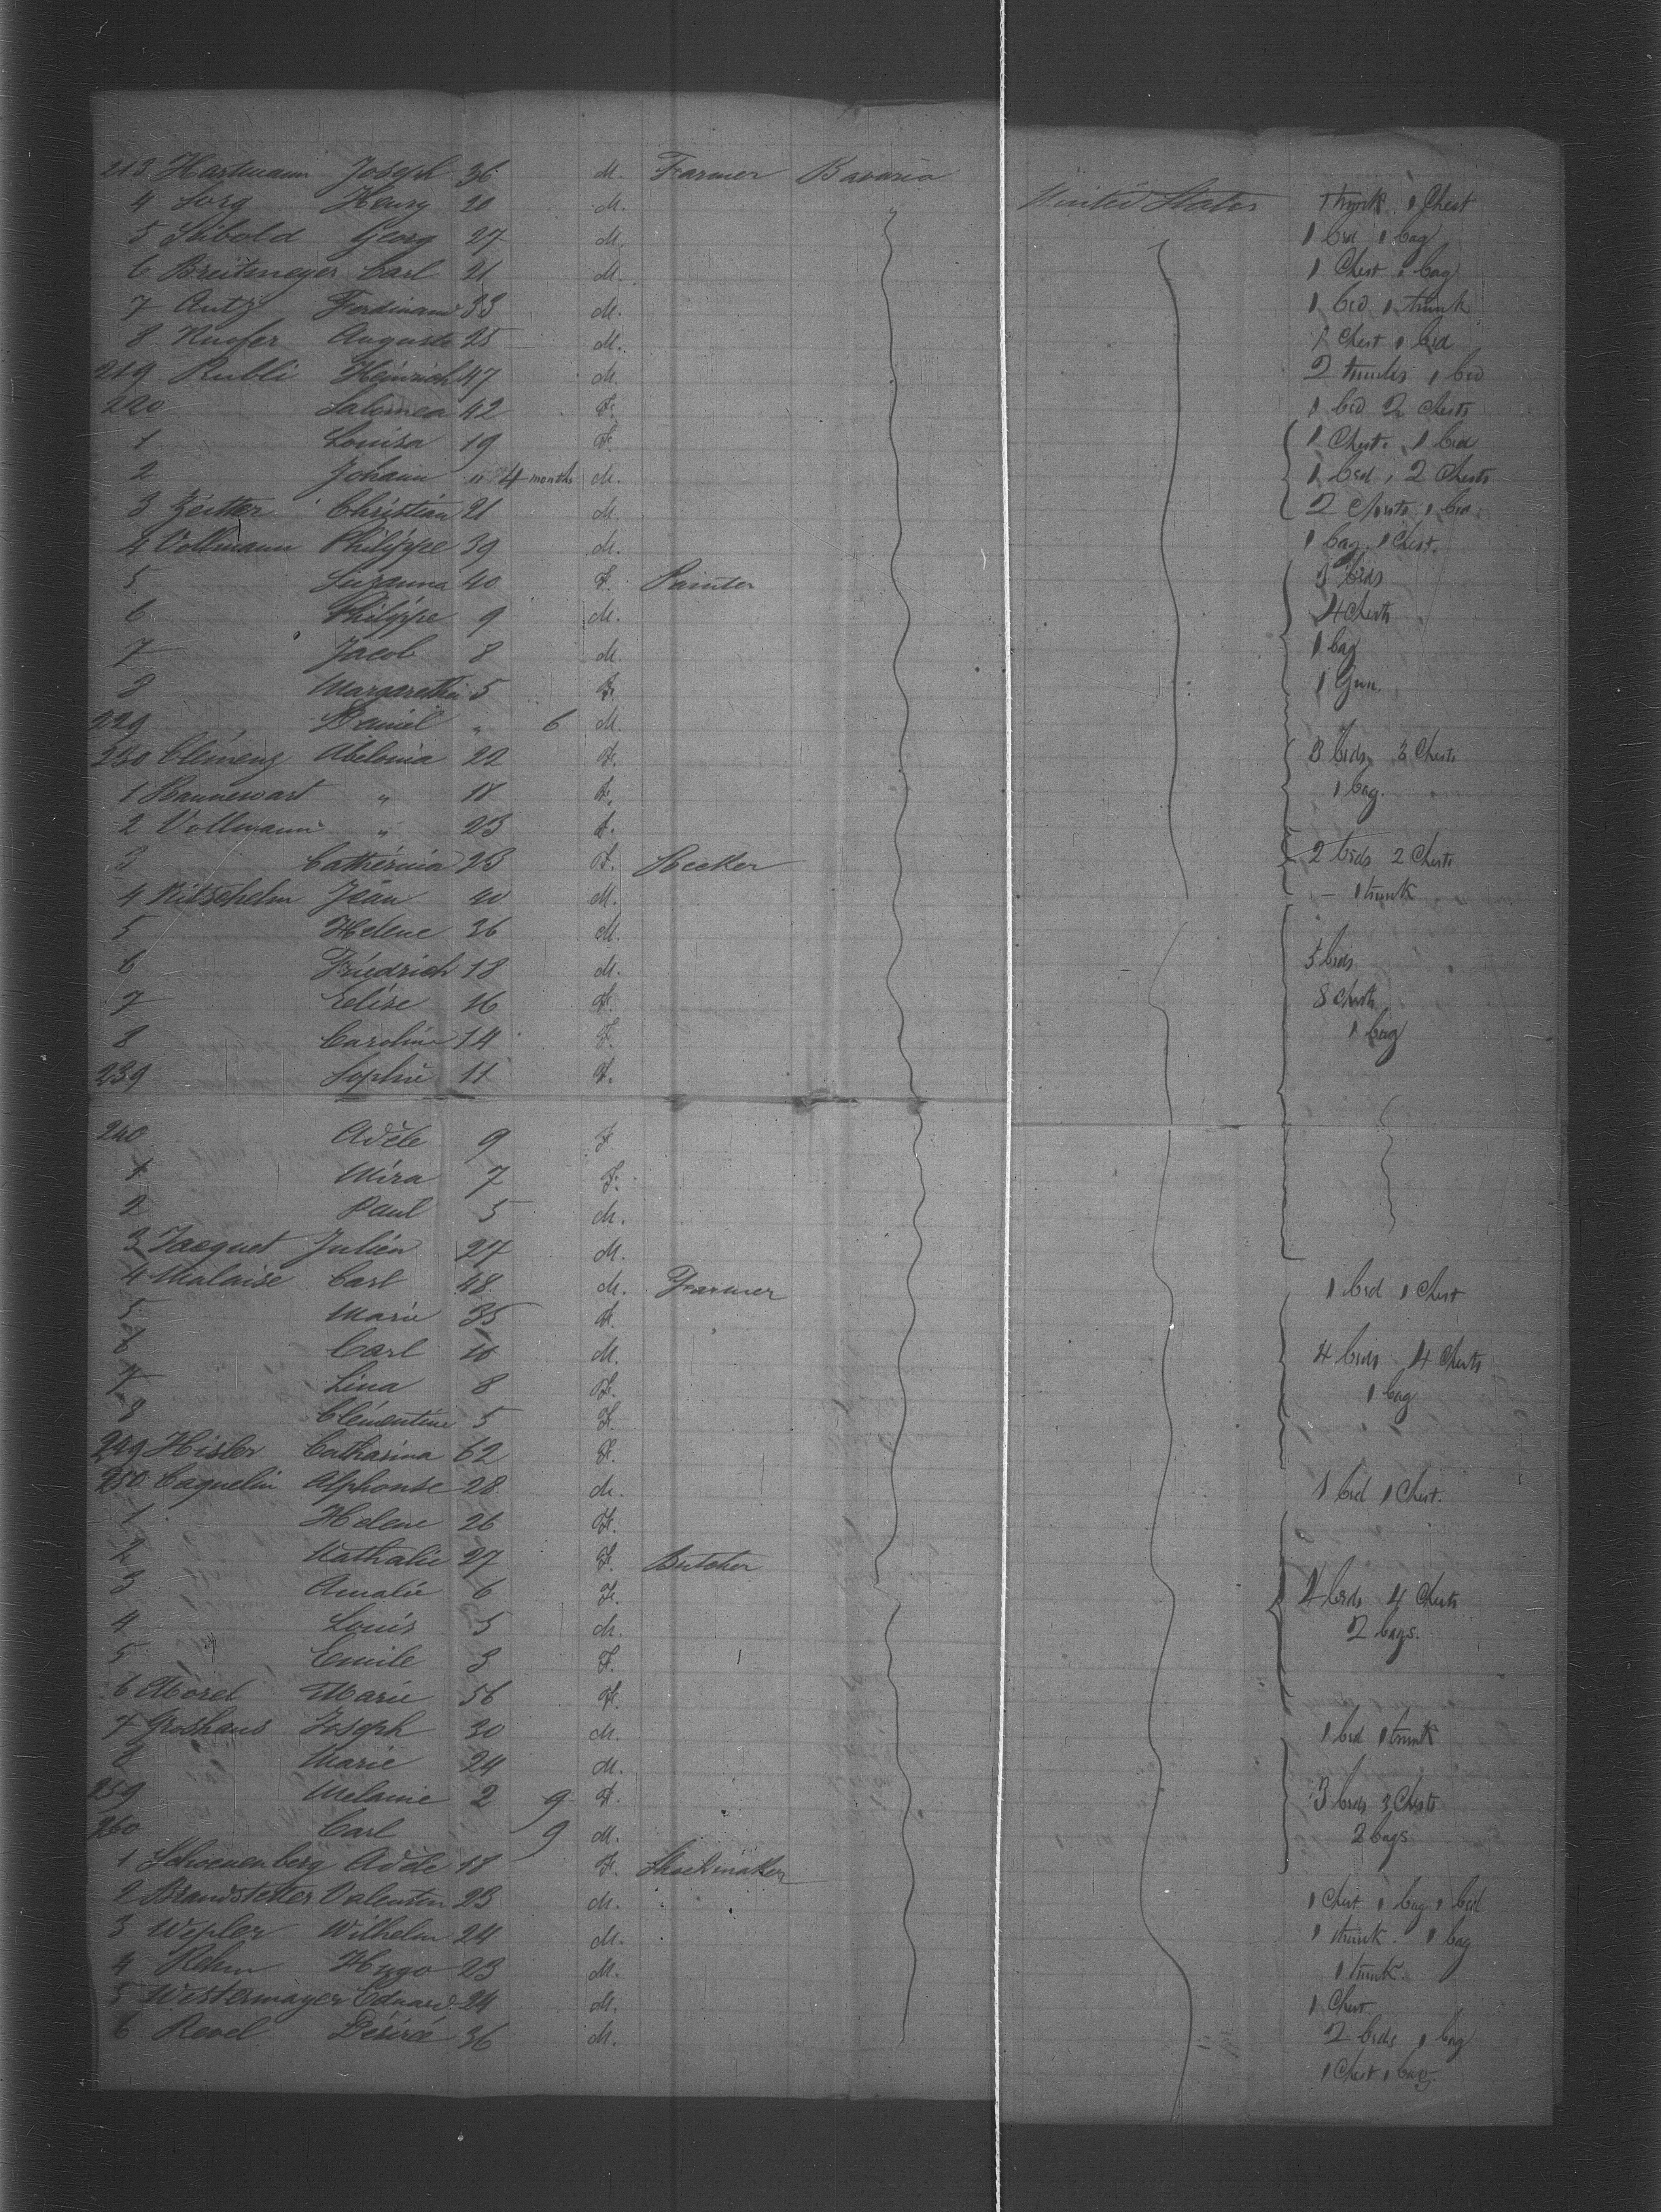 213 Hartmann Joseph 36 M. Farmer Bavaria United States 1 trunk 1 Chest
4 Sorg Henry 20 M. " 1 bed 1 bag
5 Seibold Georg 27 M. 1 Chest 1 bag
6 Breitmeyer Carl 21 M. 1 bed 1 trunk
7 Antz Ferdinand 33 M. 1 Chest 1 bed
8 Auguste 25 M. 2 trunks 1 bed
219 Rubli Heinrich 47 M. 1 bed 2 Chests
220 Salomea 42 F. 1 Chest. 1 bed
1 Louisa 19 F. 1 bed, 2 Chests
2 Johann " 4 months M. 2 Chests 1 bed
3 Zeitter Christian 21 M. 1 bag. 1 Chest.
4 Vollmann Philippe 39 M. 3 beds
5 Suzanna 40 F. Painter 4 Chests
6 Philippe 9 M. 1 bag
7 Jacob 8 M. 1 Gun.
8 Margaretha 5 F.
229 Daniel " 6 M. 3 beds, 3 Chests
230 Clémenz Abelonia 22 F. 1 bag.
1 Bannewart " 18 F.
2 Vollmann " 23 F. 2 beds 2 Chests
3 Catherina 23 F. – 1 trunk
4 Jean 40 M.
5 Helene 36 M. 5 beds
6 Friedrich 18 M. 8 Chests
7 Elise 16 F. 1 bag
8 Caroline 14 F.
239 Sophie 11 F.
240 Adèle 9 F.
1 Mira 7 F.
2 Paul 5 M.
3 Jacquet Julien 27 M. 1 bed 1 Chest
4 Malaise Carl 48 M. Farmer
5 Marie 35 F. 4 beds 4 Chests
6 Carl 10 M. 1 bag
7 Lina 8 F.
8 Clémentine 5 F.
249 Hisler Catharina 62 F. 1 bed 1 Chest.
250 Caquelin Alphonse 28 M.
1 Helene 26 F.
2 Nathalie 27 F. Butcher
3 Amalie 6 F. 4 beds 4 Chests
4 Louis 5 M. 2 bags.
5 Emile 3 F.
6 Morel Marie 56 F. 1 bed 1 trunk
7 Groshans Joseph 30 M.
8 Marie 24 M.
259 Melanie 2 9 F. 3 beds 3 Chests
260 Carl 9 M. 2 bags
1 Schwenenberg Adèle 18 F. Shoekmaker
2 Brandstetter Valentin 23 M. 1 Chest 1 bag 1 bed
3 Wepler Wilhelm 24 M. 1 trunk. 1 bag
4 Rehm Hugo 23 M. 1 trunk.
5 Westermayer Eduard 24 M. 1 Chest.
6 Revel Désiré 36 M. 2 beds 1 bag
1 Chest 1 bag.